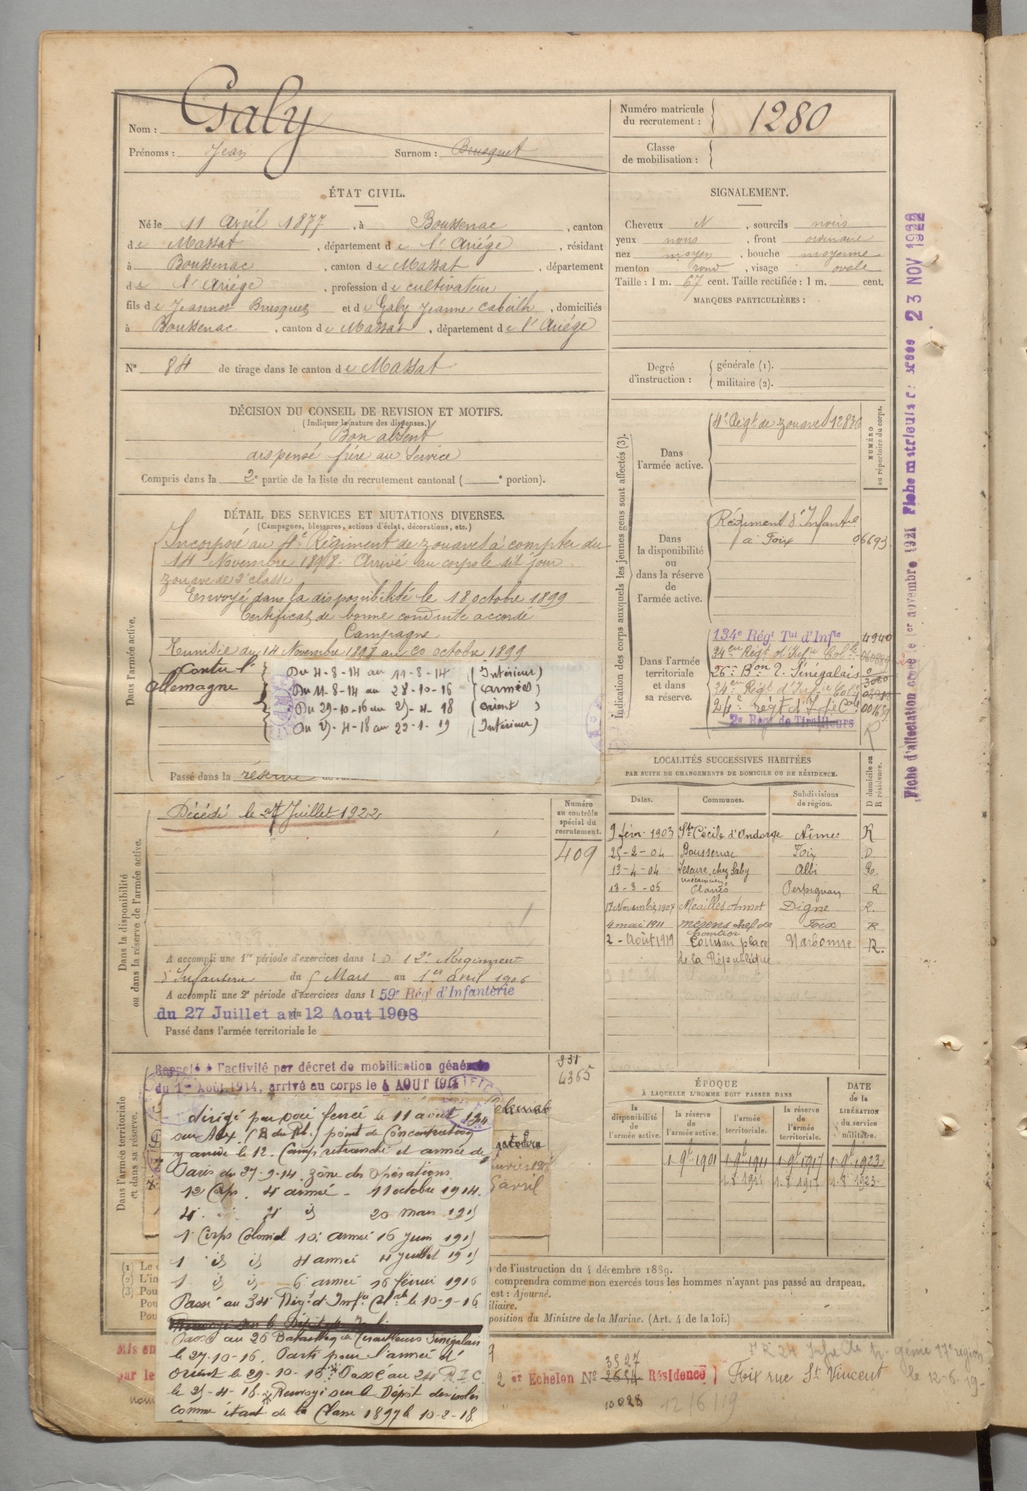 Nom : Galy
Prénoms : Jean Surnom : Brusquet
Numéro matricule du recrutement : 1280
Classe de mobilisation :
ÉTAT CIVIL.
Né le 11 Avril 1877, à Boussenac, canton
de Massat, département de l'Ariége, résidant
à Boussenac, canton de Massat, département
de l'Ariége, profession de cultivateur
fils de Jeannet Brusquet et de Galy Jeanne Cabeilh, domiciliés
à Boussenac, canton de Massat, département de l'Ariége
N° 84 de tirage dans le canton de Massat
SIGNALEMENT.
Cheveux N, sourcils noirs
yeux noirs, front ordinaire
nez moyen, bouche moyenne
menton rond, visage ovale
Taille : 1 m. 67 cent. Taille rectifiée : 1 m. cent.
MARQUES PARTICULIÈRES :
Degré d'instruction : générale (1).
militaire (2).
DÉCISION DU CONSEIL DE REVISION ET MOTIFS.
(Indiquer la nature des dispenses.)
Bon absent
dispensé frére au Service
Compris dans la 2e partie de la liste du recrutement cantonal ( e portion).
DÉTAIL DES SERVICES ET MUTATIONS DIVERSES.
(Campagnes, blessures, actions d'éclat, décorations, etc.)
Dans l'armée active.
Incorporé au 4e Régiment de zouaves à compter du
14 Novembre 1898. Arrivé au corps le dit jour
zouave de 2e classe
Envoyé dans la disponibilité le 18 octobre 1899
Certificat de bonne conduite accordé
Campagne
Tunisie du 14 Novembre 1898 au 20 octobre 1899
Contre l'Allemagne
Du 4-8-14 au 11-8-14 (Intérieur)
Du 11-8-14 au 28-10-16 (armées)
Du 29-10-16 au 25-4-18 (orient)
Du 25-4-18 au 25-1-19 (Intérieur)
Passé dans la réserve
Indication des corps auxquels les jeunes gens sont affectés (3).
NUMÉRO au répertoire du corps.
Dans l'armée active.
4e Régt de zouaves 12836
Dans la disponibilité ou dans la réserve de l'armée active.
Régiment d'Infantie
à Foix 06693
Dans l'armée territoriale et dans sa réserve.
134e Régt Tal d'Infie 4940
24eme Régt d'Infie Colle
26e Bon T. Sénégalais
24eme Régt d'Infie Colle
24e Régt d'Infie Cole 001639
2e Rég de Tirailleurs
R
Fiche d'affectation avant le 1er novembre 1921 Fiche matricule
23 NOV 1922
Dans la disponibilité ou dans la réserve de l'armée active.
Décédé le 27 Juillet 1922
Numéro au contrôle spécial du recrutement.
409
A accompli une 1re période d'exercices dans l 12e Régiment
d'Infanterie du 5 Mars au 1er avril 1906
A accompli une 2e période d'exercices dans l 59e Régt d'Infanterie
du 27 Juillet au 12 Aout 1908
Passé dans l'armée territoriale le
LOCALITÉS SUCCESSIVES HABITÉES
PAR SUITE DE CHANGEMENTS DE DOMICILE OU DE RÉSIDENCE.
Dates. Communes. Subdivisions de région. D domicile ou R résidence.
9 févr. 1903 Ste Cécile d'Andorge Nîmes R
25-2-04 Boussenac Foix D
13-4-04 Lescure, chez Galy Albi R
18-3-05 Perpignan R
Novembre 1907 Méailles Annot Digne R.
4 mai 1911 Foix R
2-Août 1919 Coursan place de la République Narbonne R.
Dans l'armée territoriale et dans sa réserve.
Rappelé à l'activité par décret de mobilisation générale
du 1er Août 1914, arrivé au corps le 4 AOUT 1914
931
4365
dirigé par voie ferrée le 11 août 1914
sur Aix (B du R) point de Concentration
y arrivé le 12. Camp retranché et armée de
Paris du 27-9-14. zône des opérations
12e Corps. 4e armée - 11 octobre 1914.
4. " 4 id 20 mars 1915
1er Corps Colonial 10e armée 16 juin 1915
1 id id 4 armée 4 juillet 1915
1 id id 6 armée 16 février 1916
Passé au 34e Régt d'Infie Colale le 10-9-16
Passé au 26 Bataillon de Tirailleurs Sénégalais
le 27-10-16. Parti pour l'armée d'
orient le 29-10-16. Passé au 24 R.I.C.
le 25-4-18. Renvoyé sur le Dépôt des isolés
comme étant de la Classe 1897 le 10-2-18.
ÉPOQUE
À LAQUELLE L'HOMME DOIT PASSER DANS
la disponibilité de l'armée active.
la réserve de l'armée active.
l'armée territoriale.
la réserve de l'armée territoriale.
DATE de la LIBÉRATION du service militaire.
1 9e 1901 1 9e 1911 1 9e 1917 1 9e 1923
de l'instruction du 4 décembre 1889.
comprendra comme non exercés tous les hommes n'ayant pas passé au drapeau.
est : Ajourné.
position du Ministre de la Marine. (Art. 4 de la loi.)
Mis en
par le
2 er Echelon N° 2624 3527 Résidence Foix rue St Vincent
10028 12/6/19
le 12-6-19